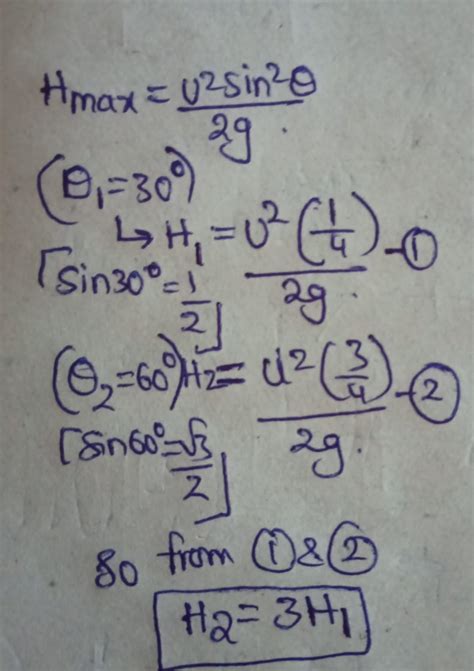 Hmax = U²sin²θ/2g.
(θ₁=30°)
↳ H₁ = U²(1/4)/2g. -①
[sin30°=1/2]
(θ₂=60°) H₂ = U²(3/4)/2g. -②
[sin60°=√3/2]
so from ① & ②
H₂ = 3H₁